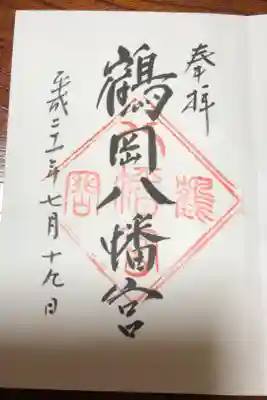 奉拝
鶴岡八幡宮
平成二十一年七月十九日